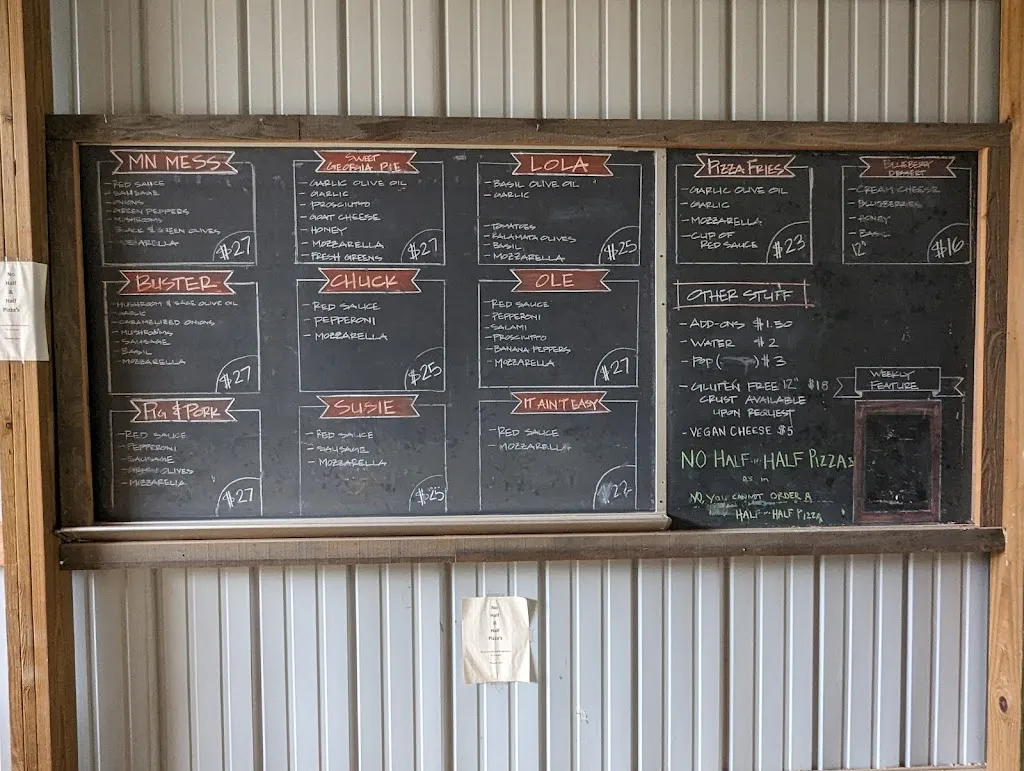 MN MESS
- RED SAUCE
- SAUSAGE
- ONIONS
- GREEN PEPPERS
- MUSHROOMS
- BLACK & GREEN OLIVES
- MOZZARELLA
$27
SWEET
GEORGIA PIE
- GARLIC OLIVE OIL
- GARLIC
- PROSCIUTTO
- GOAT CHEESE
- HONEY
- MOZZARELLA
- FRESH GREENS
$27
LOLA
- BASIL OLIVE OIL
- GARLIC
- TOMATOES
- KALAMATA OLIVES
- BASIL
- MOZZARELLA
$25
PIZZA FRIES
- GARLIC OLIVE OIL
- GARLIC
- MOZZARELLA
- CUP OF
RED SAUCE
$23
BLUEBERRY
DESSERT
- CREAM CHEESE
- BLUEBERRIES
- HONEY
- BASIL
12"
$16
BUSTER
- MUSHROOM & SAGE OLIVE OIL
- GARLIC
- CARAMELIZED ONIONS
- MUSHROOMS
- SAUSAGE
- BASIL
- MOZZARELLA
$27
CHUCK
- RED SAUCE
- PEPPERONI
- MOZZARELLA
$25
OLE
- RED SAUCE
- PEPPERONI
- SALAMI
- PROSCIUTTO
- BANANA PEPPERS
- MOZZARELLA
$27
PIG & PORK
- RED SAUCE
- PEPPERONI
- SAUSAGE
- GREEN OLIVES
- MOZZARELLA
$27
SUSIE
- RED SAUCE
- SAUSAGE
- MOZZARELLA
$25
IT AIN'T EASY
- RED SAUCE
- MOZZARELLA
OTHER STUFF
- ADD-ONS $1.50
- WATER $2
- POP ( ) $3
- GLUTEN FREE 12" $18
CRUST AVAILABLE
UPON REQUEST
- VEGAN CHEESE $5
NO HALF-N-HALF PIZZAS
as in
NO, YOU CANNOT ORDER A
HALF-N-HALF PIZZA
WEEKLY
FEATURE
No
Half
&
Half
Pizza's
No
Half
&
Half
Pizza's